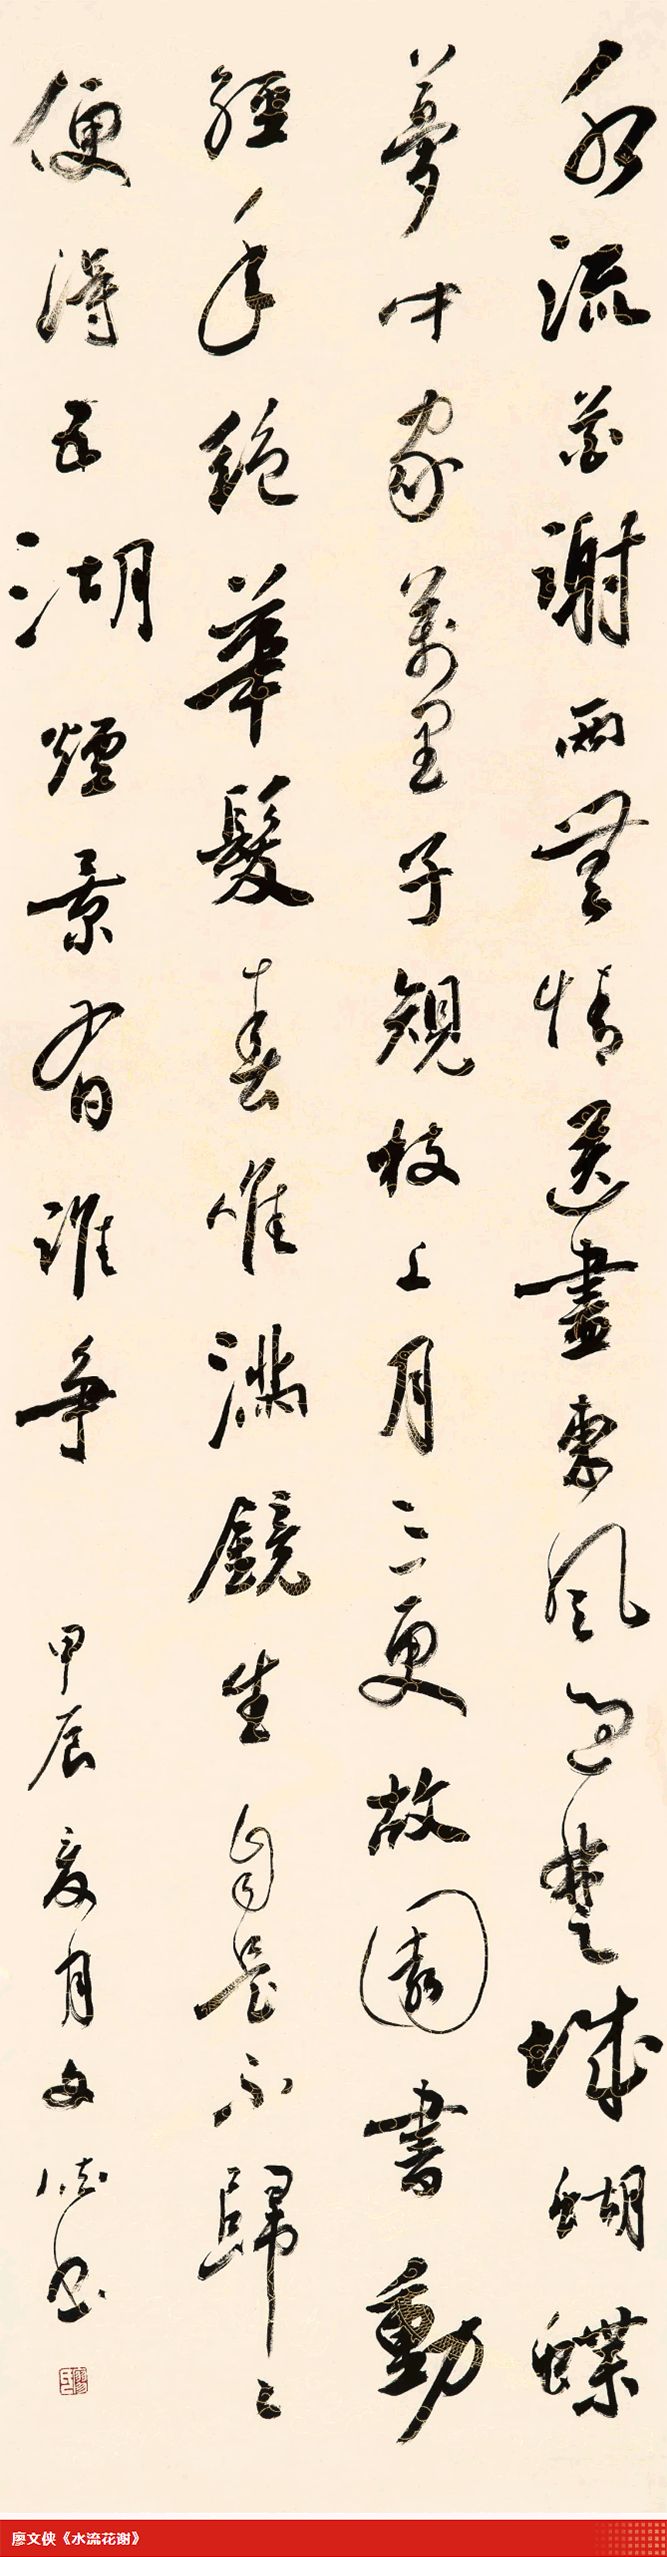 水流花謝兩無情送盡東風過楚城蝴蝶
夢中家萬里子規枝上月三更故園書動
經年絕華髮春唯滿鏡生自是不歸々
便得五湖煙景有誰爭
甲辰夏月文俠書
廖文侠《水流花谢》